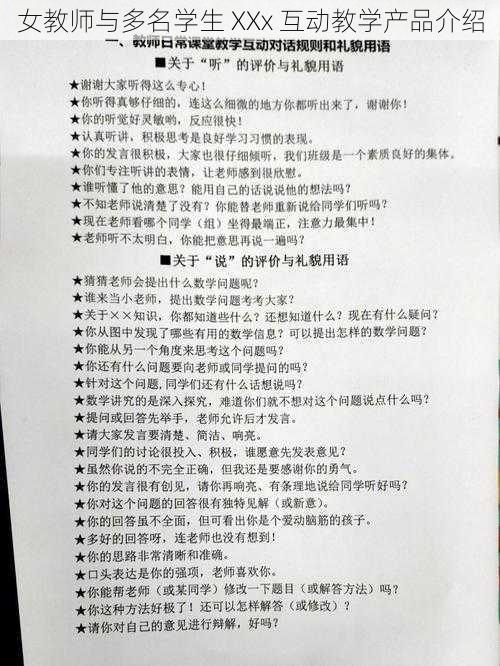 女教师与多名学生 XXx 互动教学产品介绍
一、教师日常课堂教学互动对话规则和礼貌用语
■关于“听”的评价与礼貌用语
★谢谢大家听得这么专心！
★你听得真够仔细的，连这么细微的地方你都听出来了，谢谢你！
★你的听觉好灵敏哟，反应很快！
★认真听讲，积极思考是良好学习习惯的表现。
★你的发言很积极，大家也很仔细倾听，我们班级是一个素质良好的集体。
★你们专注听讲的表情，让老师感到很欣慰。
★谁听懂了他的意思？能用自己的话说说他的想法吗？
★不知老师说清楚了没有？你能替老师重新说给同学们听吗？
★现在老师看哪个同学（组）坐得最端正，注意力最集中！
★老师听不太明白，你能把意思再说一遍吗？
■关于“说”的评价与礼貌用语
★猜猜老师会提出什么数学问题呢？
★谁来当小老师，提出数学问题考考大家？
★关于××知识，你都知道些什么？还想知道什么？现在有什么疑问？
★你从图中发现了哪些有用的数学信息？可以提出怎样的数学问题？
★你能从另一个角度来思考这个问题吗？
★你还有什么问题要向老师或同学提问的吗？
★针对这个问题,同学们还有什么话想说吗？
★数学讲究的是深入探究，难道你们就不想对这个问题说点什么吗？
★提问或回答先举手，老师允许后才发言。
★请大家发言要清楚、简洁、响亮。
★同学们的讨论很投入、积极，谁愿意先发表意见？
★虽然你说的不完全正确，但我还是要感谢你的勇气。
★你的发言很有创见，请你再响亮、有条理地说给同学听好吗？
★你对这个问题的回答很有独特见解（或新意）。
★你的回答虽不全面，但可看出你是个爱动脑筋的孩子。
★多好的回答呀，连老师也没有想到！
★你的思路非常清晰和准确。
★口头表达是你的强项，老师喜欢你。
★你能帮老师（或某同学）修改一下题目（或解答方法）吗？
★你这种方法好极了！还可以怎样解答（或修改）？
★请你对自己的意见进行辩解，好吗？